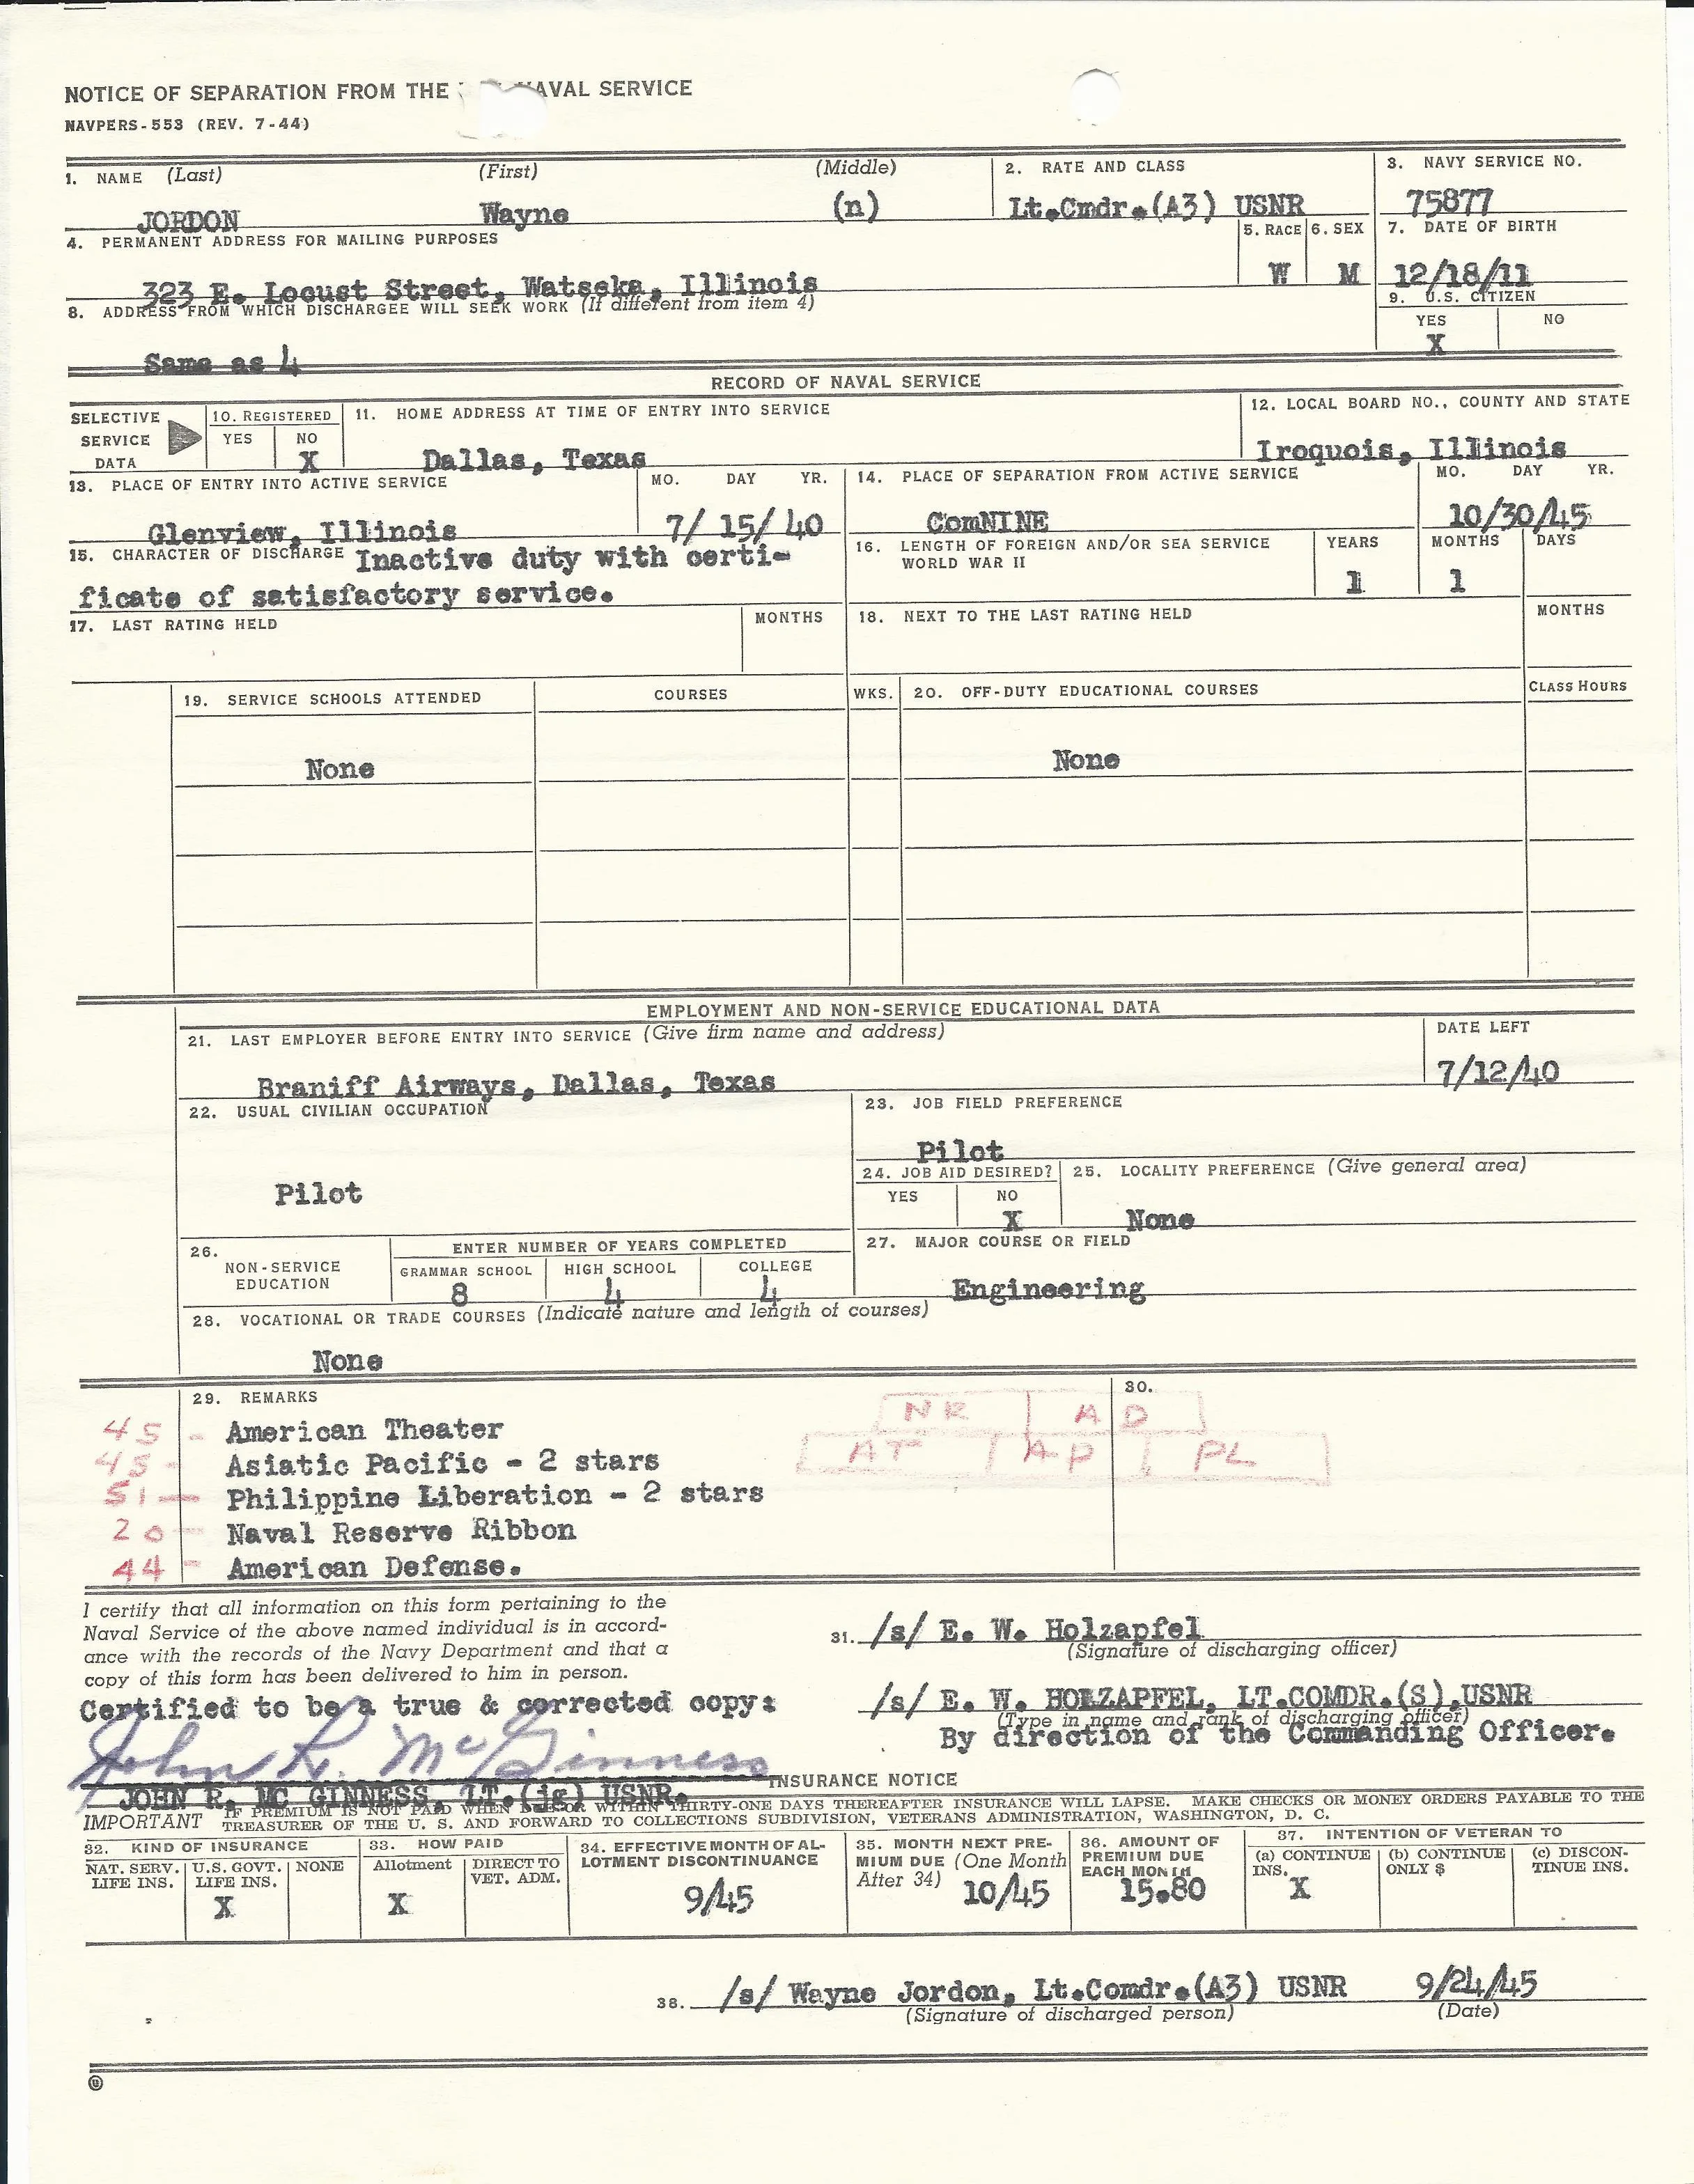 NOTICE OF SEPARATION FROM THE AVAL SERVICE
NAVPERS-553 (REV. 7-44)
1. NAME (Last) (First) (Middle)
JORDON Wayne (n)
2. RATE AND CLASS
Lt.Cmdr.(A3) USNR
3. NAVY SERVICE NO.
75877
4. PERMANENT ADDRESS FOR MAILING PURPOSES
323 E. Locust Street, Watseka, Illinois
5. RACE
W
6. SEX
M
7. DATE OF BIRTH
12/18/11
8. ADDRESS FROM WHICH DISCHARGEE WILL SEEK WORK (If different from item 4)
Same as 4
9. U.S. CITIZEN
YES NO
X
RECORD OF NAVAL SERVICE
SELECTIVE
SERVICE
DATA
10. REGISTERED
YES NO
X
11. HOME ADDRESS AT TIME OF ENTRY INTO SERVICE
Dallas, Texas
12. LOCAL BOARD NO., COUNTY AND STATE
Iroquois, Illinois
13. PLACE OF ENTRY INTO ACTIVE SERVICE
MO. DAY YR.
Glenview, Illinois 7/ 15/ 40
14. PLACE OF SEPARATION FROM ACTIVE SERVICE
MO. DAY YR.
ComNINE 10/30/45
15. CHARACTER OF DISCHARGE Inactive duty with certi-
ficate of satisfactory service.
16. LENGTH OF FOREIGN AND/OR SEA SERVICE
WORLD WAR II
YEARS MONTHS DAYS
1 1
17. LAST RATING HELD MONTHS
18. NEXT TO THE LAST RATING HELD MONTHS
19. SERVICE SCHOOLS ATTENDED COURSES WKS.
None
20. OFF-DUTY EDUCATIONAL COURSES CLASS HOURS
None
EMPLOYMENT AND NON-SERVICE EDUCATIONAL DATA
21. LAST EMPLOYER BEFORE ENTRY INTO SERVICE (Give firm name and address)
DATE LEFT
Braniff Airways, Dallas, Texas 7/12/40
22. USUAL CIVILIAN OCCUPATION
Pilot
23. JOB FIELD PREFERENCE
Pilot
24. JOB AID DESIRED?
YES NO
X
25. LOCALITY PREFERENCE (Give general area)
None
26.
NON-SERVICE
EDUCATION
ENTER NUMBER OF YEARS COMPLETED
GRAMMAR SCHOOL HIGH SCHOOL COLLEGE
8 4 4
27. MAJOR COURSE OR FIELD
Engineering
28. VOCATIONAL OR TRADE COURSES (Indicate nature and length of courses)
None
29. REMARKS
30.
45 - American Theater
45 - Asiatic Pacific - 2 stars
51 - Philippine Liberation - 2 stars
20 - Naval Reserve Ribbon
44 - American Defense.
NR AD
AT AP PL
I certify that all information on this form pertaining to the
Naval Service of the above named individual is in accord-
ance with the records of the Navy Department and that a
copy of this form has been delivered to him in person.
31. /s/ E. W. Holzapfel
(Signature of discharging officer)
Certified to be a true & corrected copy:
/s/ E. W. HOLZAPFEL, LT.COMDR.(S),USNR
(Type in name and rank of discharging officer)
By direction of the Commanding Officer.
John R. McGinness
JOHN R. MC GINNESS, LT.(jg) USNR.
INSURANCE NOTICE
IMPORTANT IF PREMIUM IS NOT PAID WHEN DUE OR WITHIN THIRTY-ONE DAYS THEREAFTER INSURANCE WILL LAPSE. MAKE CHECKS OR MONEY ORDERS PAYABLE TO THE
TREASURER OF THE U. S. AND FORWARD TO COLLECTIONS SUBDIVISION, VETERANS ADMINISTRATION, WASHINGTON, D. C.
32. KIND OF INSURANCE
NAT. SERV. LIFE INS. U.S. GOVT. LIFE INS. NONE
X
33. HOW PAID
Allotment DIRECT TO VET. ADM.
X
34. EFFECTIVE MONTH OF AL-
LOTMENT DISCONTINUANCE
9/45
35. MONTH NEXT PRE-
MIUM DUE (One Month
After 34) 10/45
36. AMOUNT OF
PREMIUM DUE
EACH MONTH
15.80
37. INTENTION OF VETERAN TO
(a) CONTINUE INS. (b) CONTINUE ONLY $ (c) DISCON-
TINUE INS.
X
38. /s/ Wayne Jordon, Lt.Comdr.(A3) USNR 9/24/45
(Signature of discharged person) (Date)